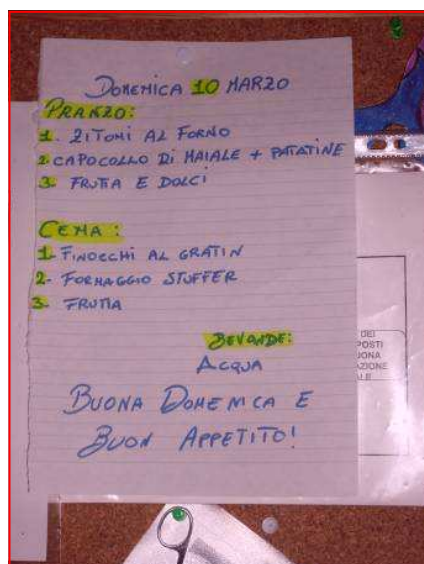 DOMENICA 10 MARZO
PRANZO:
1. ZITONI AL FORNO
2. CAPOCOLLO DI MAIALE + PATATINE
3. FRUTTA E DOLCI
CENA:
1- FINOCCHI AL GRATIN
2- FORMAGGIO STUFFER
3- FRUTTA
BEVANDE:
ACQUA
BUONA DOMENICA E
BUON APPETITO!
DEI
POSTI
UONA
AZIONE
ALE